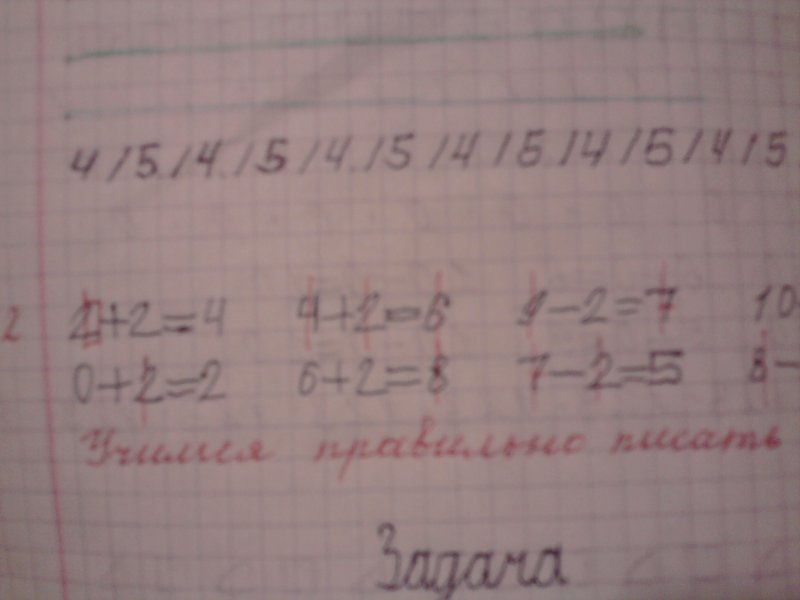 4/5/4/5/4/5/4/5/4/5/4/5
2 2+2=4 4+2=6 9-2=7 10
0+2=2 6+2=8 7-2=5 8-
Учимся правильно писать
Задача